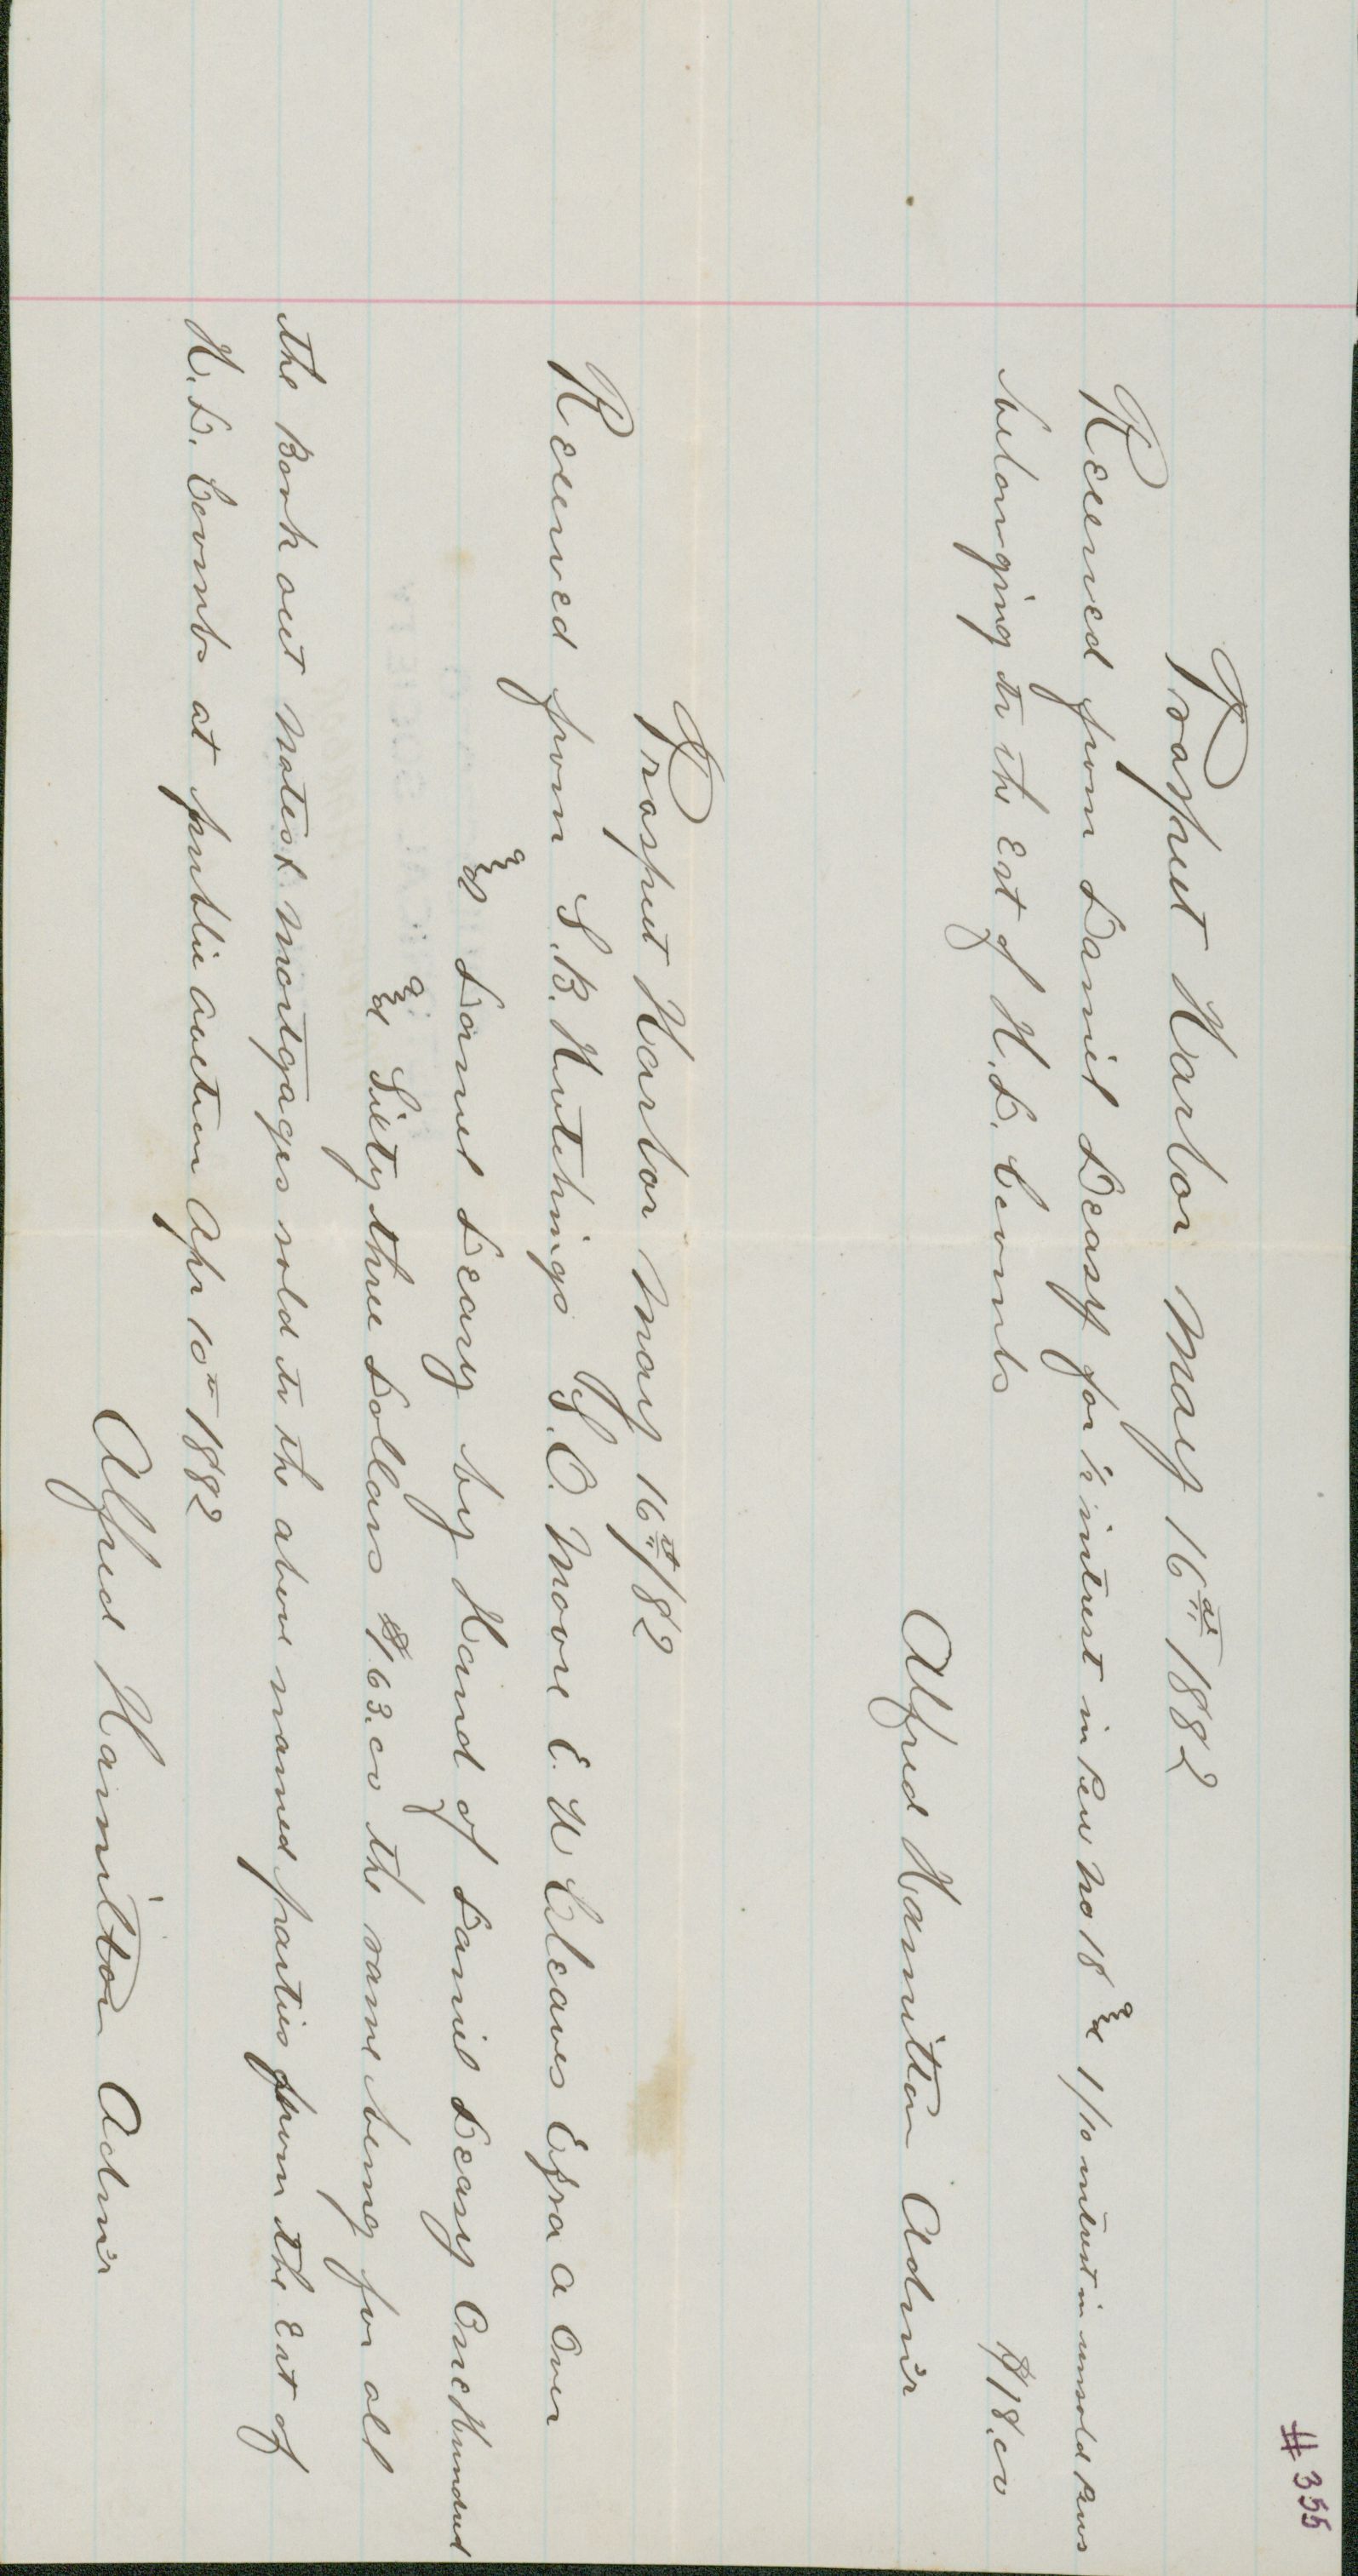 # 355
Prospect Harbor May 16th 1882
Received from Daniel Deasy for ½ intrest in Pew No 18 and 1/10 intrest in unsold Pews
belonging to the Est of H. D. Coombs $18.00
Alfred Hamilton Admr
Prospect Harbor May 16th /82
Received from S. B. Hutchings S. O. Moore E. W Cleaves Ezra A Over
and Daniel Deasy by Hand of Daniel Deasy One Hundred
and Sixty three Dollars $163.00 the same being for all
the Book out Notes & Mortgages sold to the above named parties from the Est of
H. D. Coombs at public auction Apr 10th 1882
Alfred Hamilton Admr